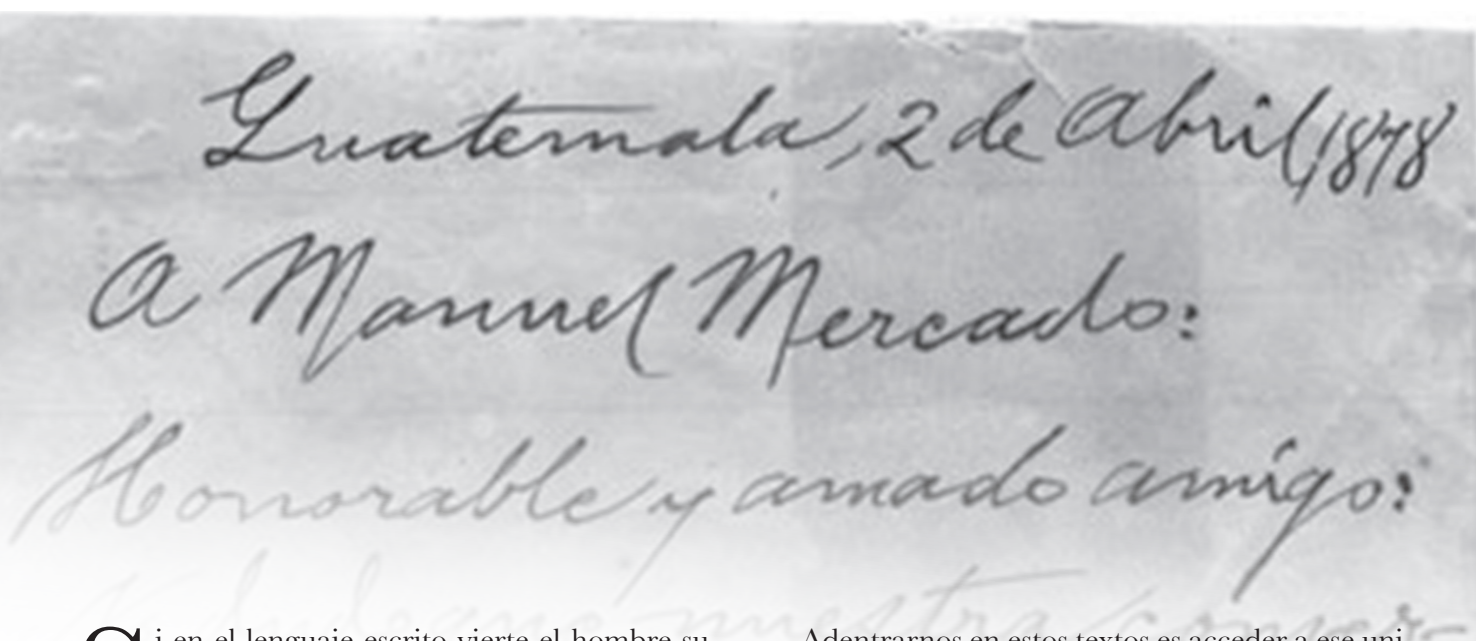 Guatemala, 2 de Abril, 1878
A Manuel Mercado:
Honorable y amado amigo:
Si en el lenguaje escrito vierte el hombre su
Adentrarnos en estos textos es acceder a ese uni-